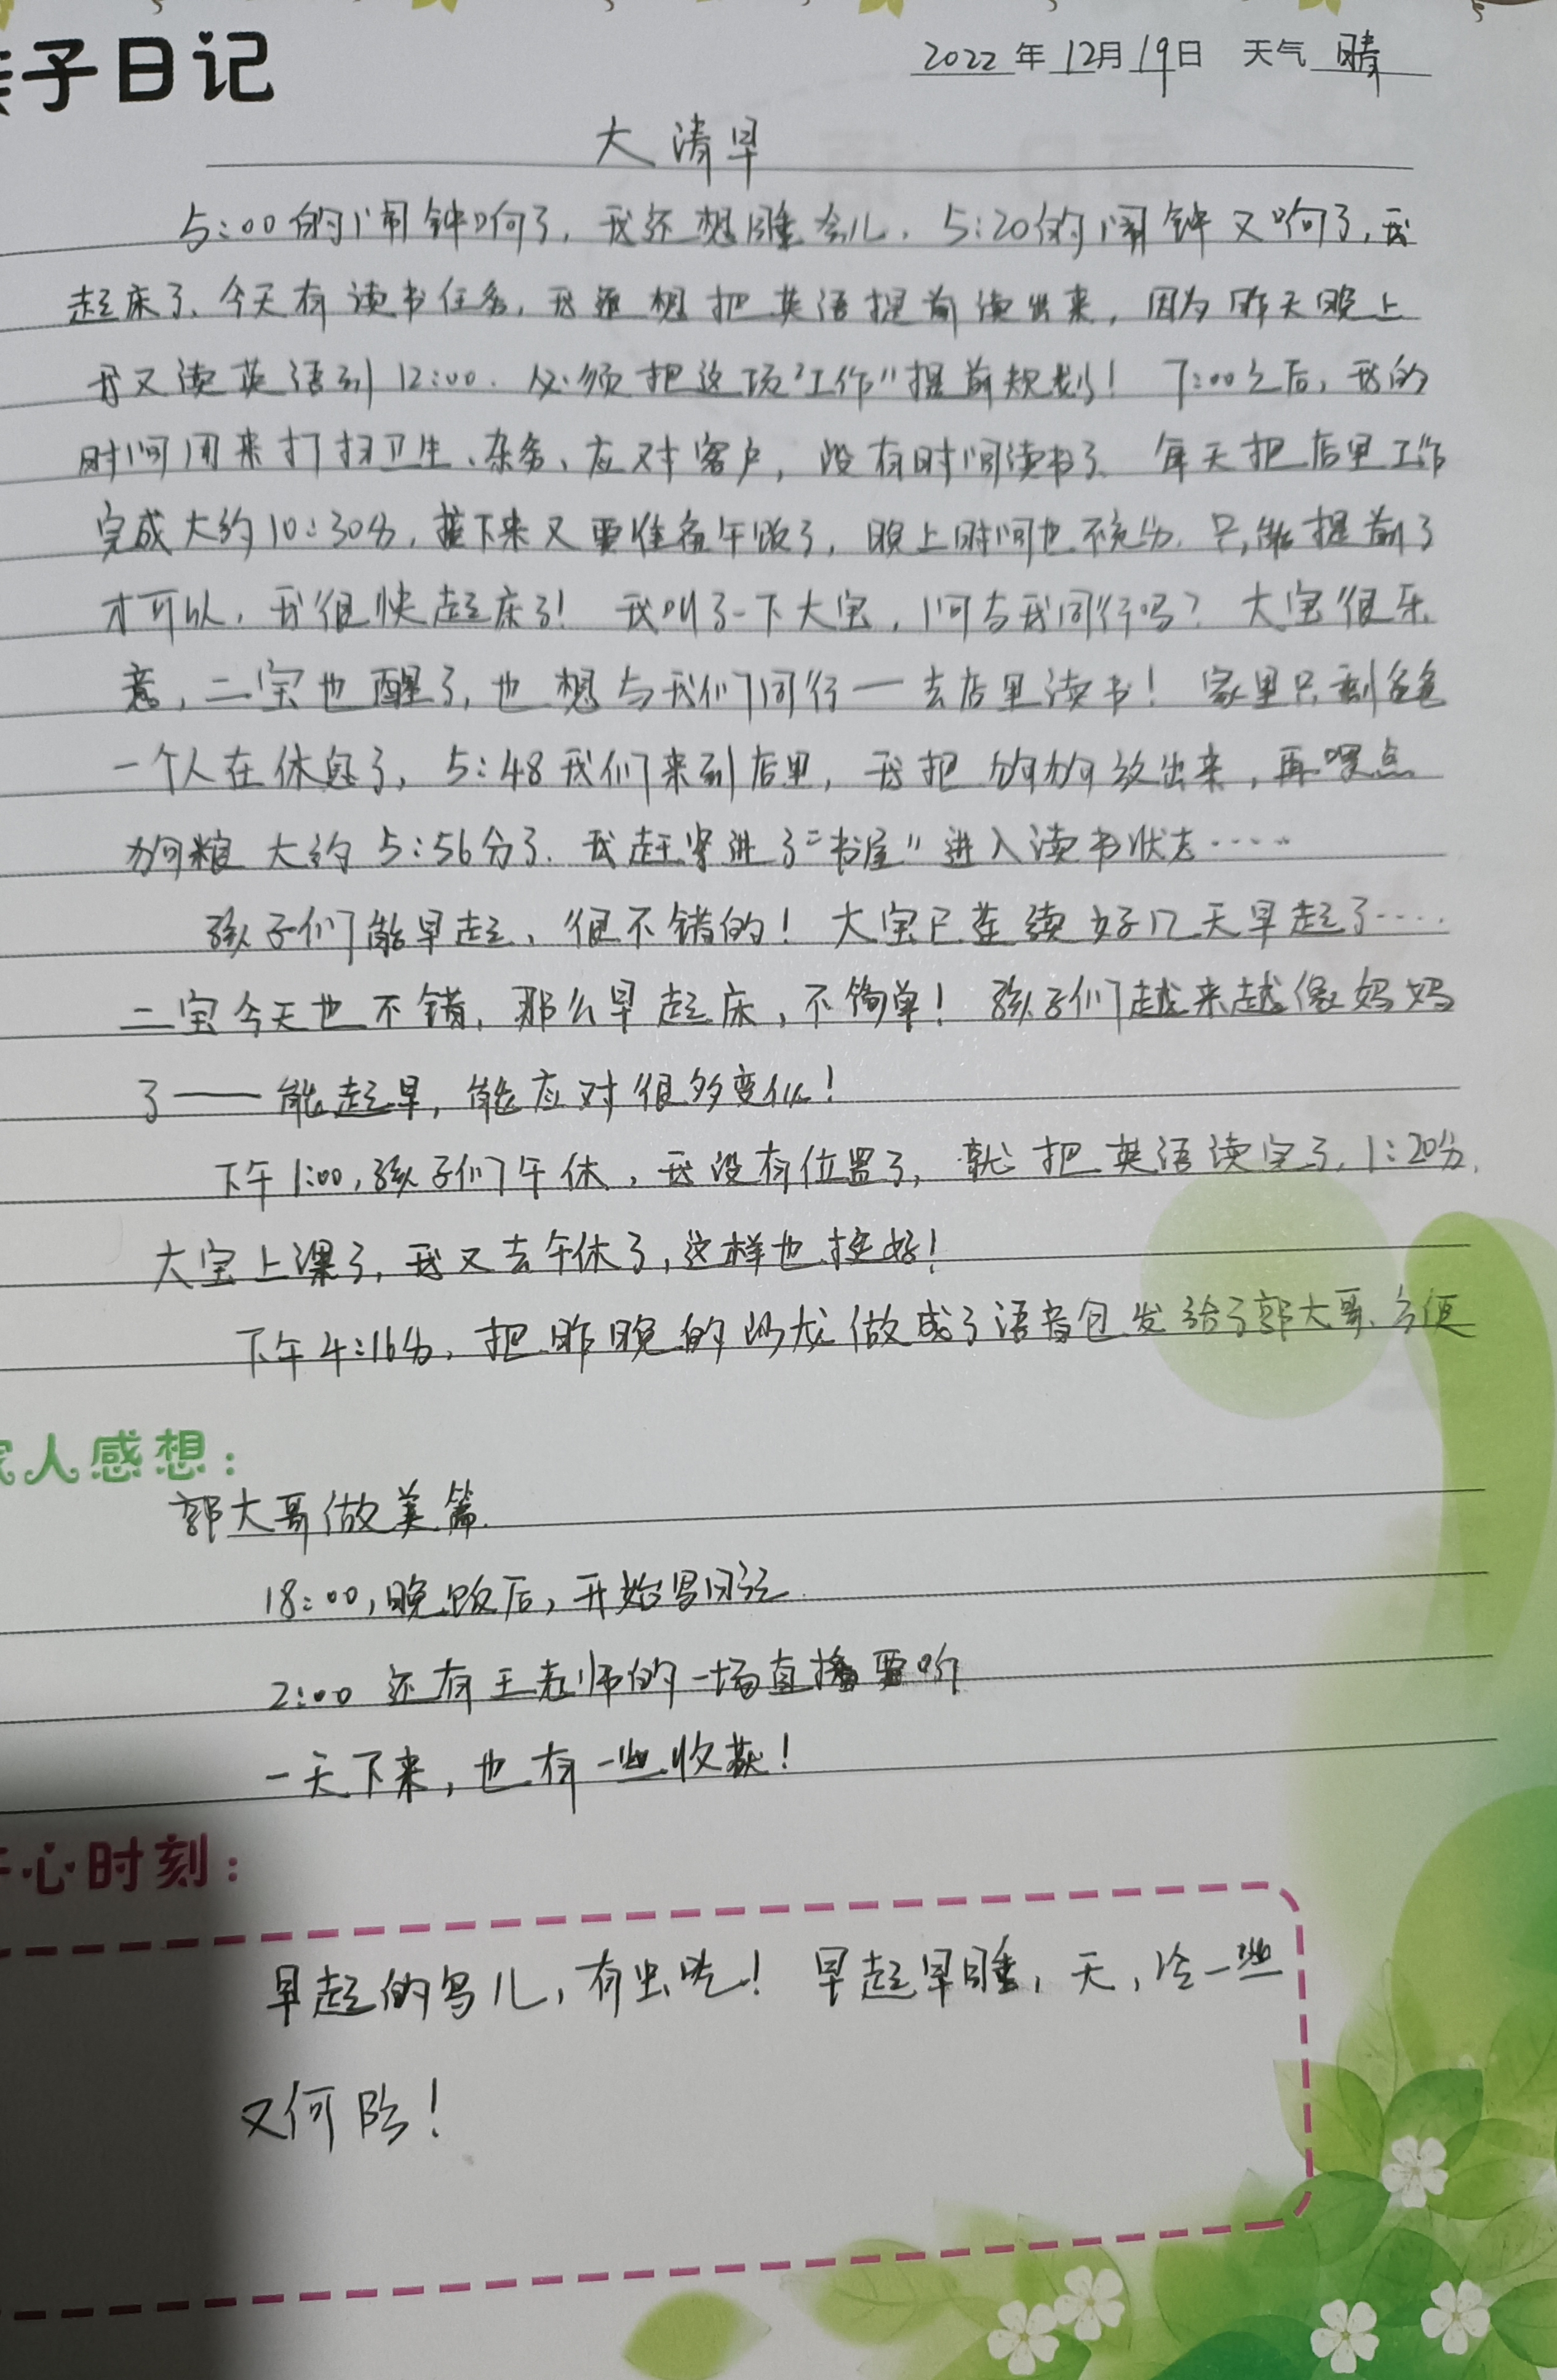 亲子日记
2022年12月19日 天气 晴
大清早
5:00的闹钟响了,我还想睡会儿.5:20的闹钟又响了,我
起床了、今天有读书任务,我还想把英语提前读出来,因为昨天晚上
我又读英语到12:00.必须把这项"工作"提前规划!7:00之后,我的
时间用来打扫卫生、杂务、应对客户,没有时间读书了、每天把店里工作
完成大约10:30分,接下来又要准备午饭了,晚上时间也不充分.只能提前了
才可以,我很快起床了!我叫了一下大宝,问与我同行吗?大宝很乐
意,二宝也醒了,也想与我们同行一去店里读书!家里只剩爸爸
一个人在休息了,5:48我们来到店里,我把狗狗放出来,再喂点
狗粮 大约5:56分了.我赶紧进了"书屋"进入读书状态……
孩子们能早起、很不错的!大宝已连续好几天早起了……
二宝今天也不错,那么早起床,不简单!孩子们越来越像妈妈
了——能起早,能应对很多变化!
下午1:00,孩子们午休,我没有位置了,就把英语读完了,1:20分,
大宝上课了,我又去午休了,这样也挺好!
下午4:16分,把昨晚的 做成了语音包发给了郭大哥、方便
家人感想:
郭大哥做美篇.
18:00,晚饭后,开始写日记.
2:00 还有王老师的一场直播要听
一天下来,也有一些收获!
开心时刻:
早起的鸟儿,有虫吃!早起早睡,天,冷一些
又何妨!